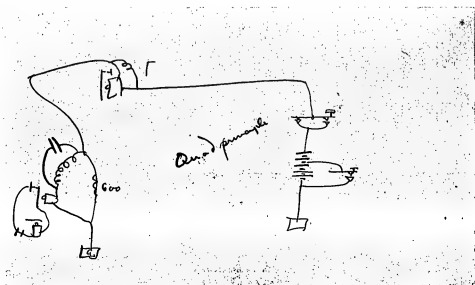 Quad principle
600